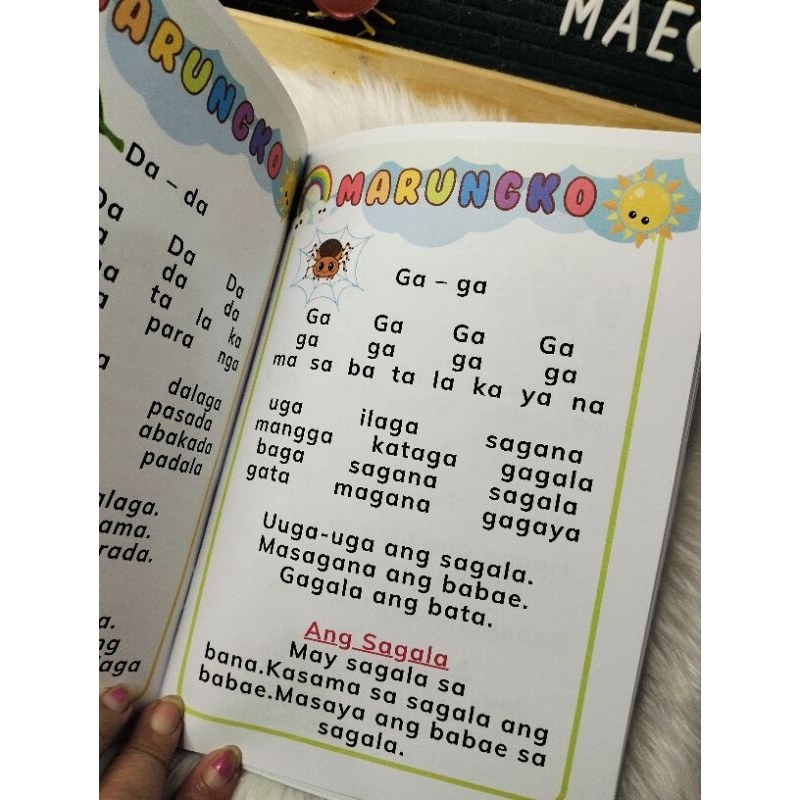 MAE
MARUNGKO
Da – da
Da Da
da da
ta la ka
para nga
dalaga
pasada
abakada
padala
MARUNGKO
Ga – ga
Ga Ga Ga Ga
ga ga ga ga
ma sa ba ta la ka ya na
uga ilaga sagana
mangga kataga gagala
baga sagana sagala
gata magana gagaya
Uuga-uga ang sagala.
Masagana ang babae.
Gagala ang bata.
Ang Sagala
May sagala sa
bana.Kasama sa sagala ang
babae.Masaya ang babae sa
sagala.